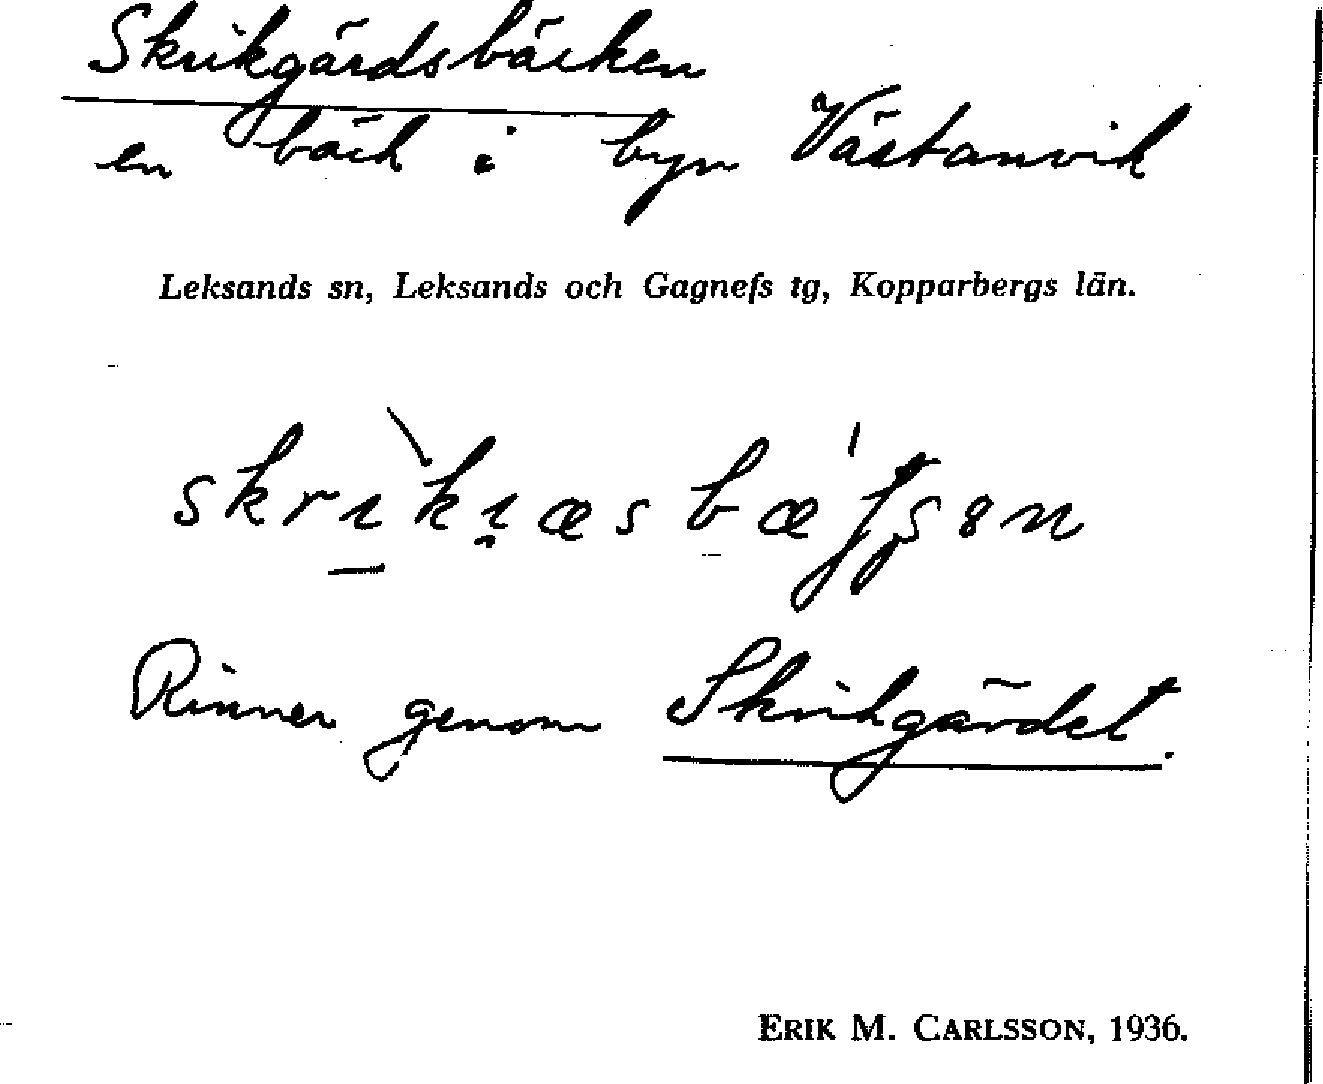 Skrikgärdsbäcken
en bäck i byn Västanvik
Leksands sn, Leksands och Gagnefs tg, Kopparbergs län.
Rinner genom Skrikgärdet.
ERIK M. CARLSSON, 1936.